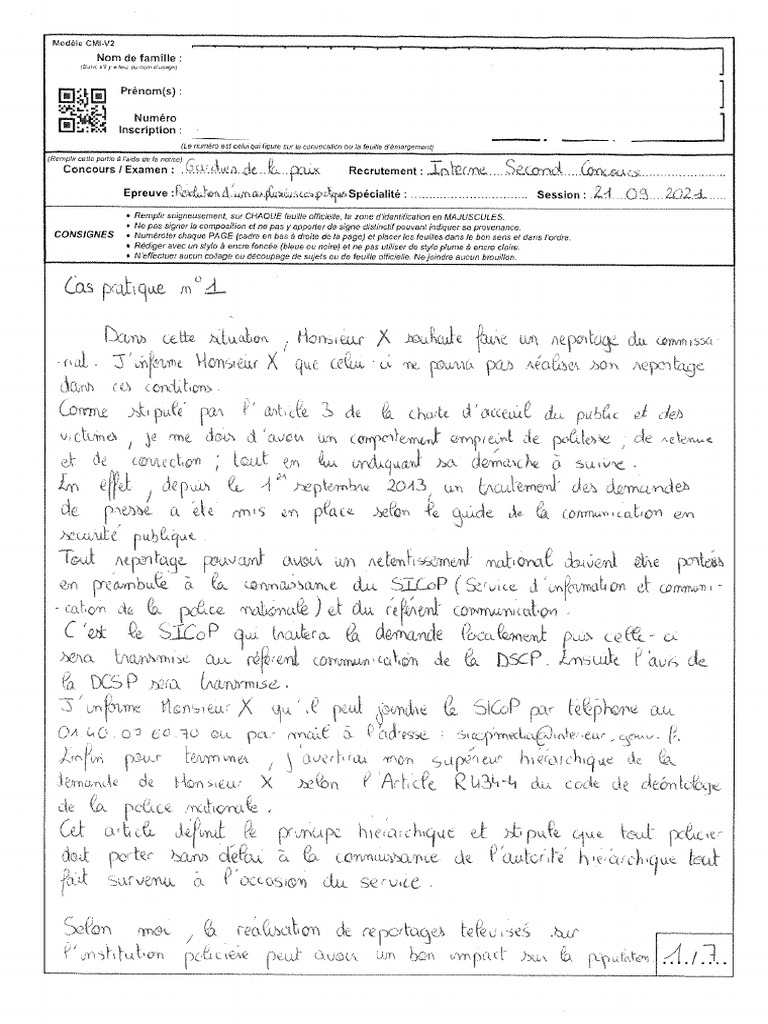 Modèle CMI-V2
Nom de famille :
(Suivi, s'il y a lieu, du nom d'usage)
Prénom(s) :
Numéro
Inscription :
(Le numéro est celui qui figure sur la convocation ou la feuille d'émargement)
(Remplir cette partie à l'aide de la notice)
Concours / Examen : Gardiens de la paix Recrutement : Interne Second Concours
Epreuve : Résolution d'un ou plusieurs cas pratiques Spécialité : Session : 21 09 2021
CONSIGNES
• Remplir soigneusement, sur CHAQUE feuille officielle, la zone d'identification en MAJUSCULES.
• Ne pas signer la composition et ne pas y apporter de signe distinctif pouvant indiquer sa provenance.
• Numéroter chaque PAGE (cadre en bas à droite de la page) et placer les feuilles dans le bon sens et dans l'ordre.
• Rédiger avec un stylo à encre foncée (bleue ou noire) et ne pas utiliser de stylo plume à encre claire.
• N'effectuer aucun collage ou découpage de sujets ou de feuille officielle. Ne joindre aucun brouillon.
Cas pratique n° 1
Dans cette situation, Monsieur X souhaite faire un reportage du commissa-
-riat. J'informe Monsieur X que celui-ci ne pourra pas réaliser son reportage
dans ces conditions.
Comme stipulé par l'article 3 de la charte d'acceuil du public et des
victimes, je me dois d'avoir un comportement empreint de politesse, de retenue
et de correction ; tout en lui indiquant sa démarche à suivre.
En effet, depuis le 1er septembre 2013, un traitement des demandes
de presse a été mis en place selon le guide de la communication en
sécurité publique.
Tout reportage pouvant avoir un retentissement national doivent être portées
en préambule à la connaissance du SICoP (Service d'information et communi-
-cation de la police nationale) et du référent communication.
C'est le SICoP qui traitera la demande localement puis celle-ci
sera transmise au référent communication de la DSCP. Ensuite l'avis de
la DCSP sera transmise.
J'informe Monsieur X qu'il peut joindre le SICoP par téléphone au
01.40.07.60.70 ou par mail à l'adresse : sicopmedia@interieur.gouv.fr.
Enfin pour terminer, j'avertirai mon supérieur hiérarchique de la
demande de Monsieur X selon l'Article R434-4 du code de déontologie
de la police nationale.
Cet article définit le principe hiérarchique et stipule que tout policier
doit porter sans délai à la connaissance de l'autorité hiérarchique tout
fait survenu à l'occasion du service.
Selon moi, la réalisation de reportages télévisés sur
l'institution policière peut avoir un bon impact sur la population
1../7....